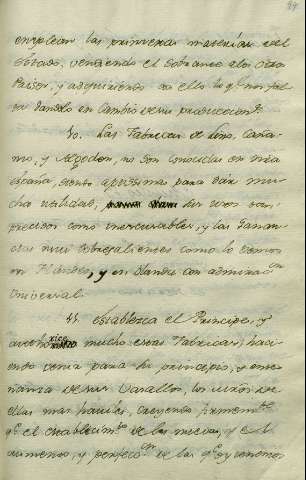 emplean las primeras materias del
Estado, vendiendo el sobrante a los otros
Paises, y adquiriendo de ellos lo qe. nos fal
ta dandolo en cambio de sus producciones.
40. Las Fabricas de Lino, Caña-
mo, y Algodon, no son conocidas en nra
España, siendo aptissimas para dár mu
cha utilidad, sus usos son
precisos como inexcusables, y las Ganan
cias mui sobresalientes como lo vemos
en Flandes, y en Olanda con admiracon
Universal.
41. Establezca el Principe, y
mucho estas Fabricas, haci
endo venir para su principio, y ense
ñanza de sus Vasallos, los de
ellas mas habiles, creyendo firmemte.
qe. el establecimto. de las nuevas, y el
aumento, y perfeccon. de las qe. oy tenemos